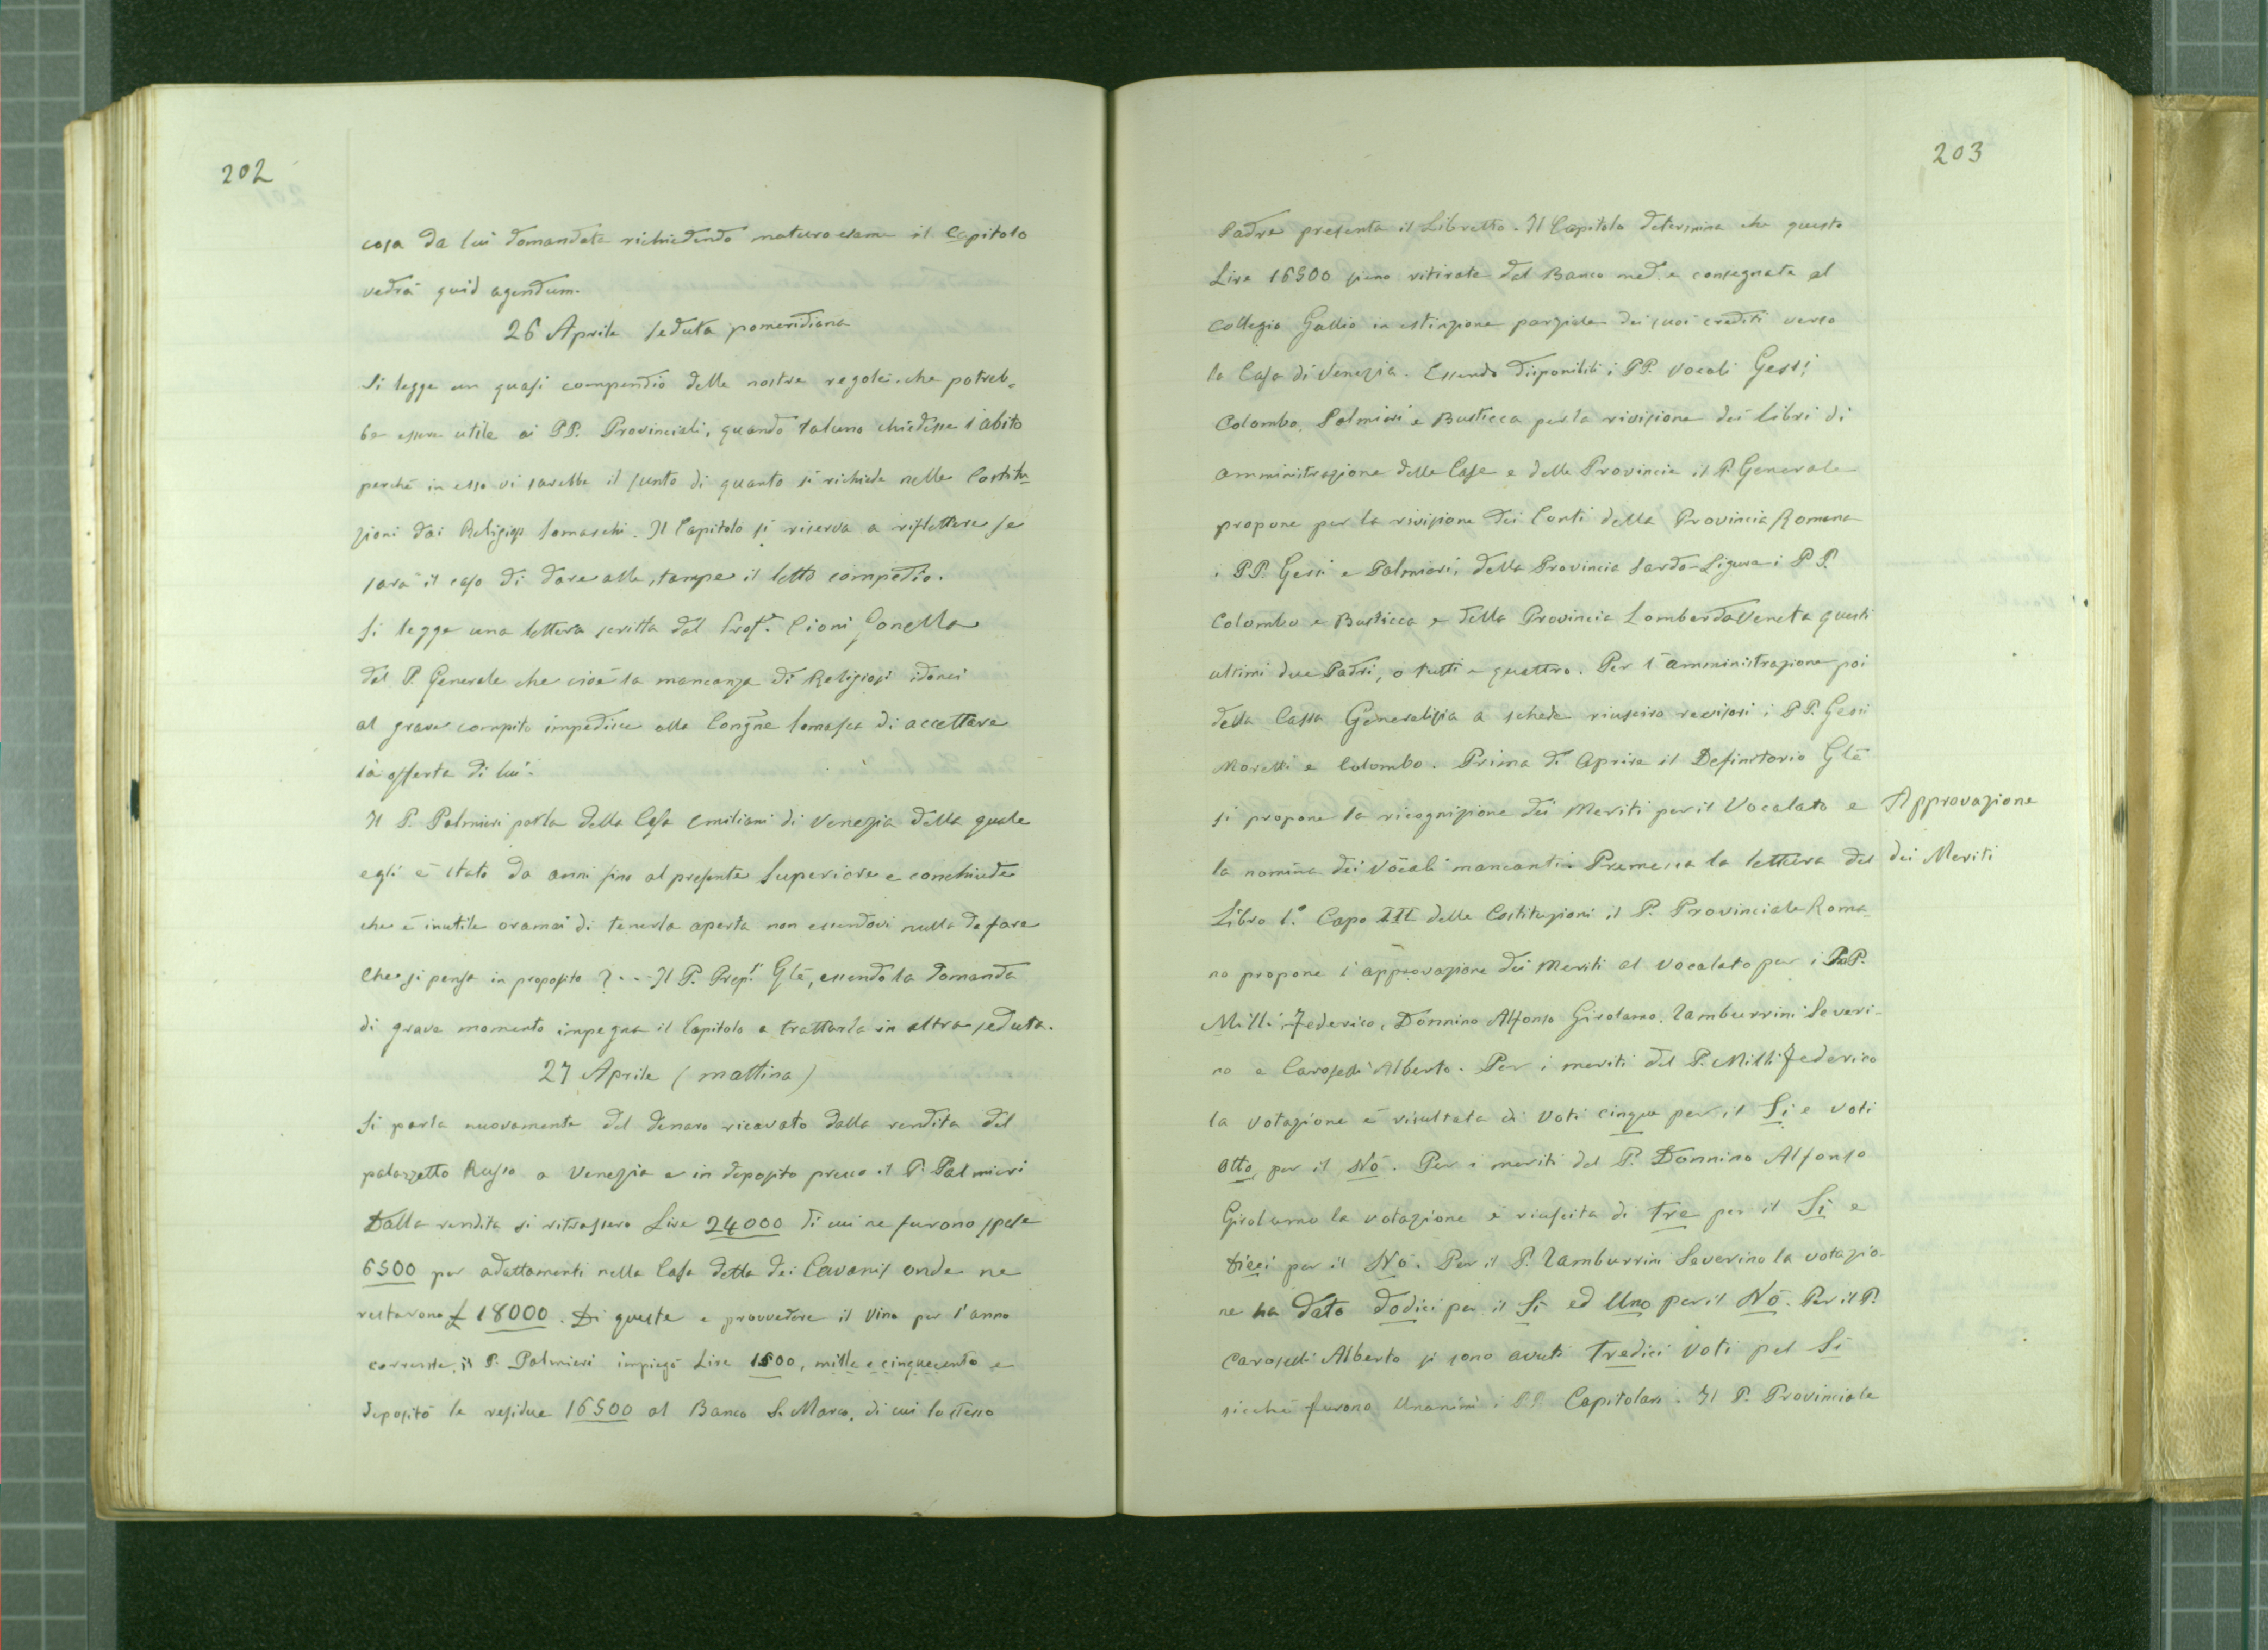 202
cosa da lui domandata richiedendo maturo esame il Capitolo
vedrà quid agendum.
26 Aprile seduta pomeridiana
Si legge un quasi compendio delle nostre regole che potreb-
be essere utile ai PP. Provinciali, quando taluno chiedesse l'abito
perché in esso vi sarebbe il sunto di quanto si richiede nelle Costitu-
zioni dai Religiosi Somaschi. Il Capitolo si riserva a riflettere se
sarà il caso di dare alle stampe il letto compedio.
Si legge una lettera scritta dal Prof. Cioni Gonella
dal P. Generale che cioè la mancanza di Religiosi idonei
al grave compito impedisce alla Congne Somasca di accettare
la offerta di lui.
Il P. Palmieri parla della Casa Emiliani di Venezia della quale
egli è stato da anni fino al presente Superiore e conchiude
che è inutile oramai di tenerla aperta non essendovi nulla da fare
Che si pensa in proposito? ... Il P. Prep. Gle, essendo la domanda
di grave momento impegna il Capitolo a trattarla in altra seduta.
27 Aprile (mattina)
Si parla nuovamente del denaro ricavato dalla vendita del
palazzetto Russo a Venezia e in deposito presso il P. Palmieri
Dalla vendita si ritrassero Lire 24000 di cui ne furono spese
6500 per adattamenti nella Casa detta dei Cavanis onde ne
restarono £ 18000. Di queste a provvedere il vino per l'anno
corrente, il P. Palmieri impiegò Lire 1500, mille e cinquecento e
depositò le residue 16500 al Banco S. Marco, di cui lo stesso
203
Padre presenta il Libretto. Il Capitolo determina che queste
Lire 16500 siano ritirate dal Banco med. e consegnate al
Collegio Gallio in estinzione parziale dei suoi crediti verso
la Casa di Venezia. Essendo disponibili i PP. Vocali Gessi,
Colombo, Palmieri e Busticca per la rivisione dei libri di
amministrazione delle Case e delle Provincie il P. Generale
propone per la rivisione dei Conti della Provincia Romana
i PP. Gessi e Palmieri, della Provincia Sardo-Ligure i PP.
Colombo e Busticca e della Provincia LombardoVeneta questi
ultimi due Padri, o tutti e quattro. Per l'amministrazione poi
della Cassa Generalizia a schede riusciro revisori i PP. Gessi
Moretti e Colombo. Prima di Aprire il Definitorio Gle
si propone la ricognizione dei Meriti per il Vocalato e
Approvazione
la nomina dei Vocali mancanti. Premessa la lettura del
dei Meriti
Libro 1.° Capo III delle Costituzioni il P. Provinciale Roma-
no propone l'approvazione dei Meriti al Vocalato per i PP.
Milli Federico, Donnino Alfonso Girolamo, Tamburrini Severi-
no e Caroselli Alberto. Per i meriti del P. Milli Federico
la votazione è risultata di Voti cinque per il Si e voti
Otto per il No. Per i meriti del P. Donnino Alfonso
Girolamo la votazione è riuscita di tre per il Si e
Dieci per il No. Per il P. Tamburrini Severino la votazio-
ne ha dato dodici per il Si ed Uno per il No. Per il P.
Caroselli Alberto si sono avuti tredici voti pel Si
sicché furono Unanimi i PP. Capitolari. Il P. Provinciale